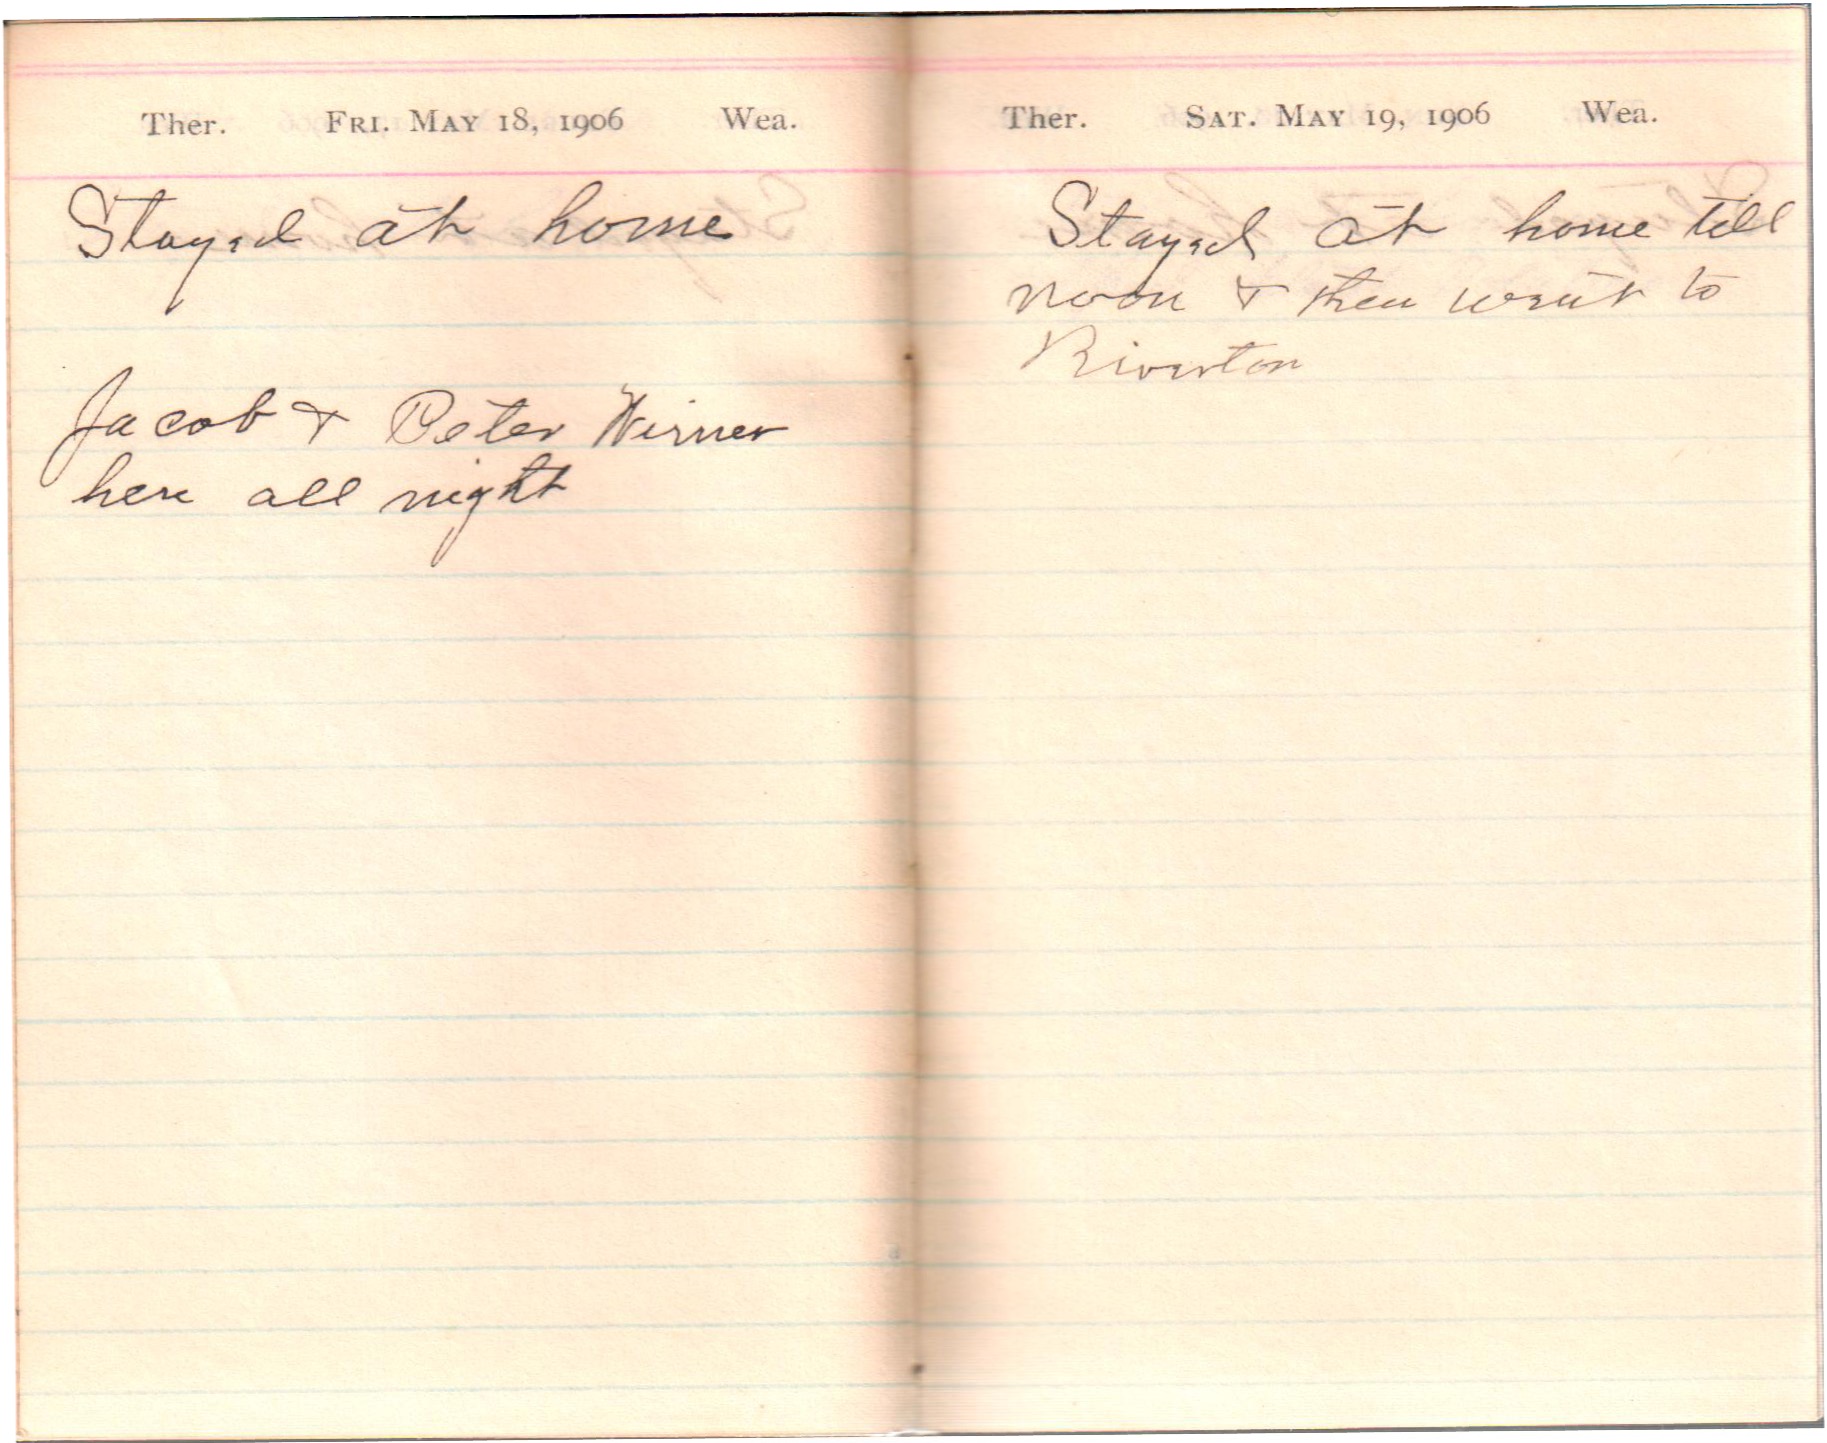 Ther. FRI. MAY 18, 1906 Wea.
Stayed at home
Jacob & Peter Wirner
here all night
Ther. SAT. MAY 19, 1906 Wea.
Stayed at home till
noon & then went to
Riverton